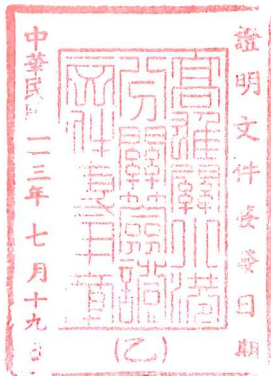 證明文件發日期
高雄關小港
分關簽證
文件專用章
中華民國 一一三年 七月十九日
(乙)